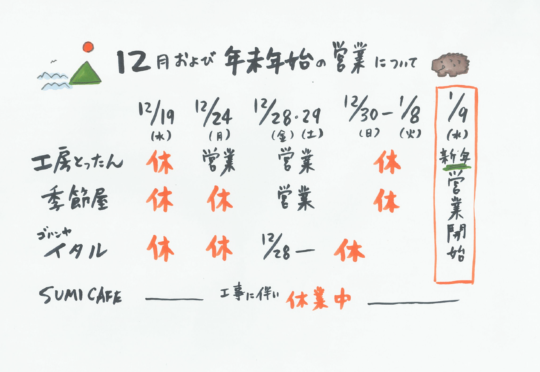 12月および年末年始の営業について
12/19 12/24 12/28・29 12/30－1/8 1/9
(水) (月) (金)(土) (日) (火) (水)
工房とったん 休 営業 営業 休
季節屋 休 休 営業 休
ゴハンヤ
イタル 休 休 12/28－休
新年営業開始
SUMI CAFE 工事に伴い 休業中